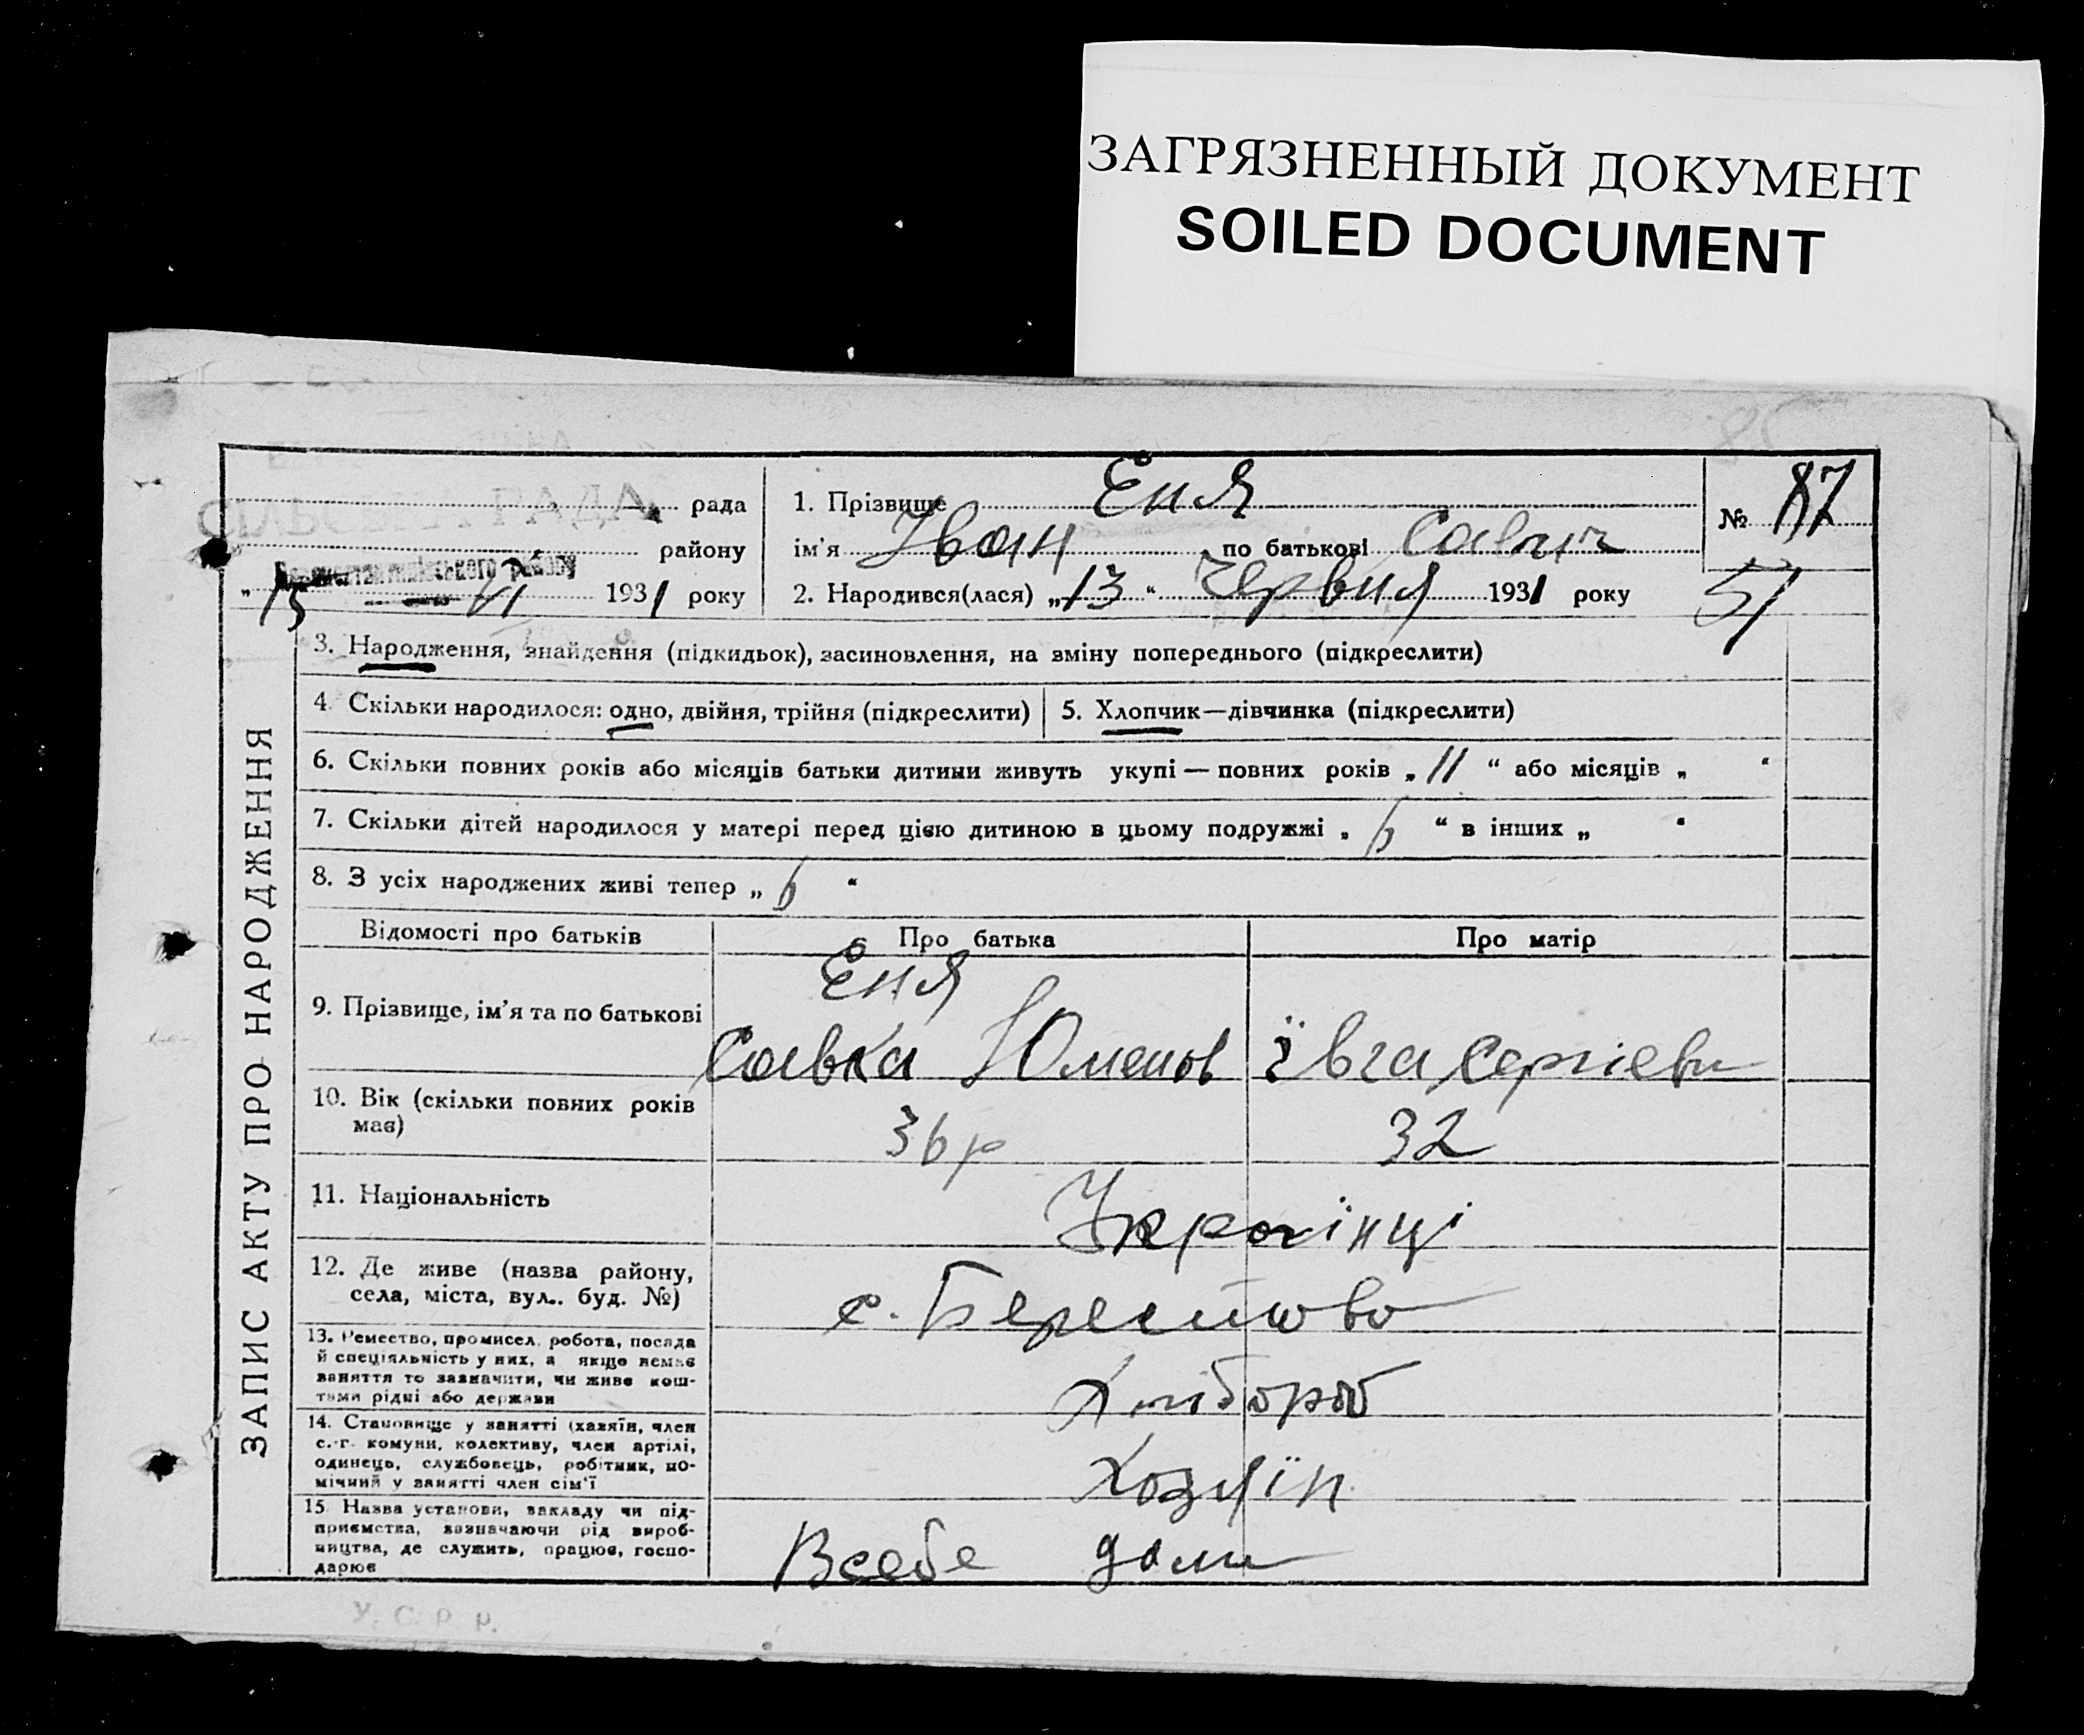 ЗАГРЯЗНЕННЫЙ ДОКУМЕНТ
SOILED DOCUMENT
рада
району
„15 VI 1931 року
1. Прізвище Еня
ім'я Іван по батькові Савич
2. Народився(лася) „13“ Червня 1931 року
№ 87
51
ЗАПИС АКТУ ПРО НАРОДЖЕННЯ
3. Народження, знайдення (підкидьок), засиновлення, на зміну попереднього (підкреслити)
4. Скільки народилося: одно, двійня, трійня (підкреслити)
5. Хлопчик—дівчинка (підкреслити)
6. Скільки повних років або місяців батьки дитини живуть укупі — повних років „11“ або місяців „ “
7. Скільки дітей народилося у матері перед цією дитиною в цьому подружжі „6“ в інших „ “
8. З усіх народжених живі тепер „6“
Відомості про батьків Про батька Про матір
9. Прізвище, ім'я та по батькові
Еня
Савка Юменов Ївга Сергієвн
10. Вік (скільки повних років
має)
36 р 32
11. Національність
Украінці
12. Де живе (назва району,
села, міста, вул.. буд. №)
с. Берестово
13. Ремество, промисел, робота, посада
й спеціяльність у них, а якщо немає
заняття то зазначити, чи живе кош-
тами рідні або держави
Хлібороб
14. Становище у занятті (хазяїн, член
с.-г. комуни, колективу, член артілі,
одинець, службовець, робітник, по-
мічний у занятті член сім'ї
Хозяїн
15 Назва установи, закладу чи під-
приємства, зазначаючи рід вироб-
ництва, де служить, працює, госпо-
дарює
Всебе дома
У. С. Р. Р.